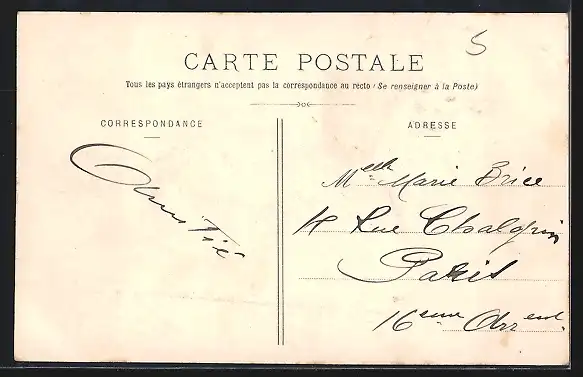 5
CARTE POSTALE
Tous les pays étrangers n'acceptent pas la correspondance au recto (Se renseigner à la Poste)
CORRESPONDANCE
ADRESSE
Amitié
Melle Marie Brice
4 Rue Chalgrin
Paris
16eme Arrend.